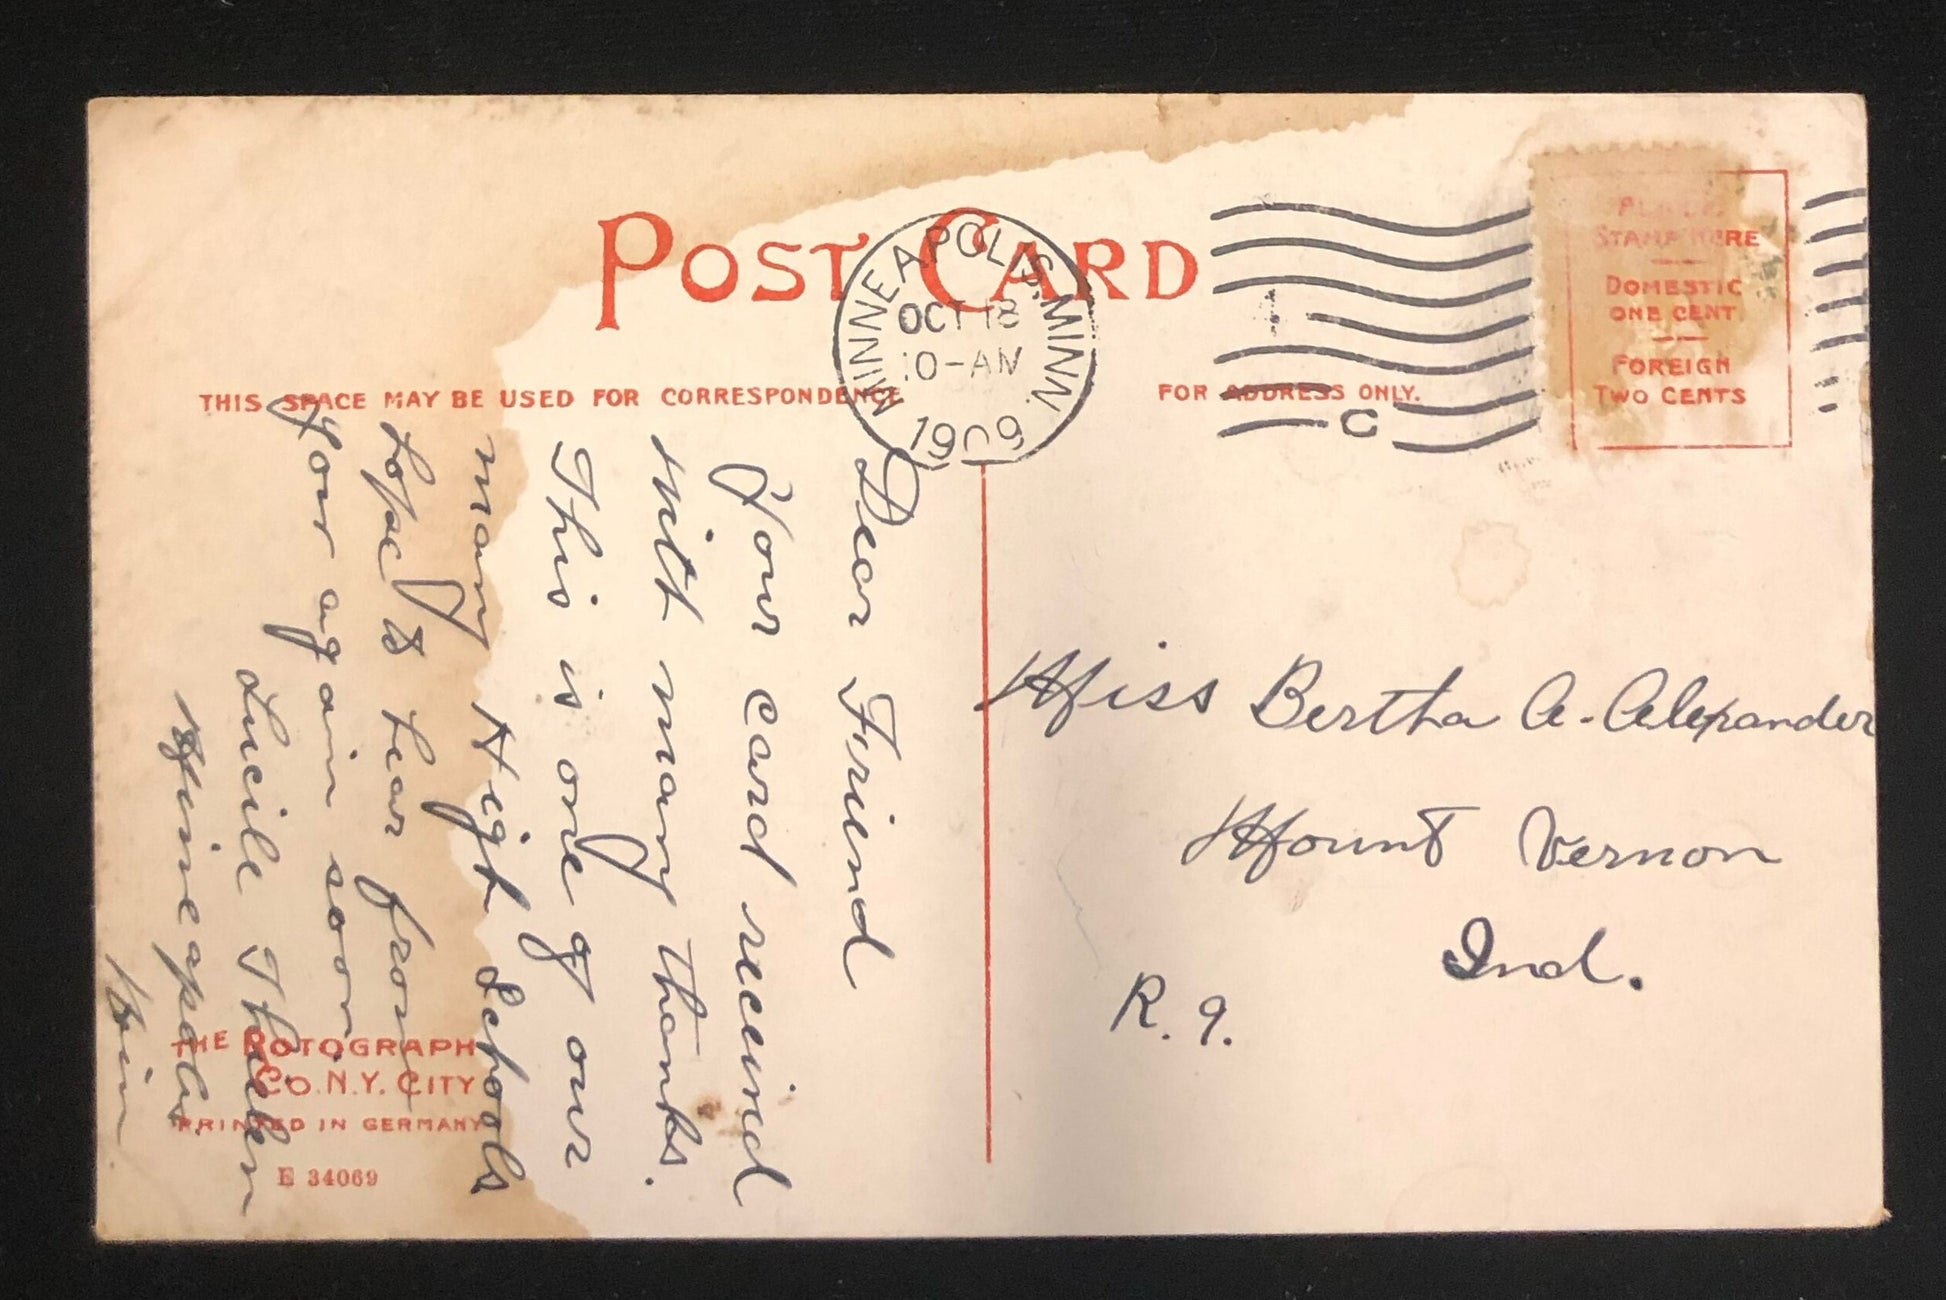 POST CARD
MINNEAPOLIS, MINN.
OCT 18
10-AM
1909
1
C
PLACE
STAMP HERE
DOMESTIC
ONE CENT
FOREIGN
TWO CENTS
THIS SPACE MAY BE USED FOR CORRESPONDENCE
FOR ADDRESS ONLY.
Dear Friend
Your card receind
with many thanks.
This is one of our
many High Schools
hope to hear from
your again soon
Lucile
Minneapolis
Minn
Miss Bertha A. Alexander
Mount Vernon
Ind.
R. 9.
THE ROTOGRAPH
CO. N.Y. CITY
PRINTED IN GERMANY
E 34069